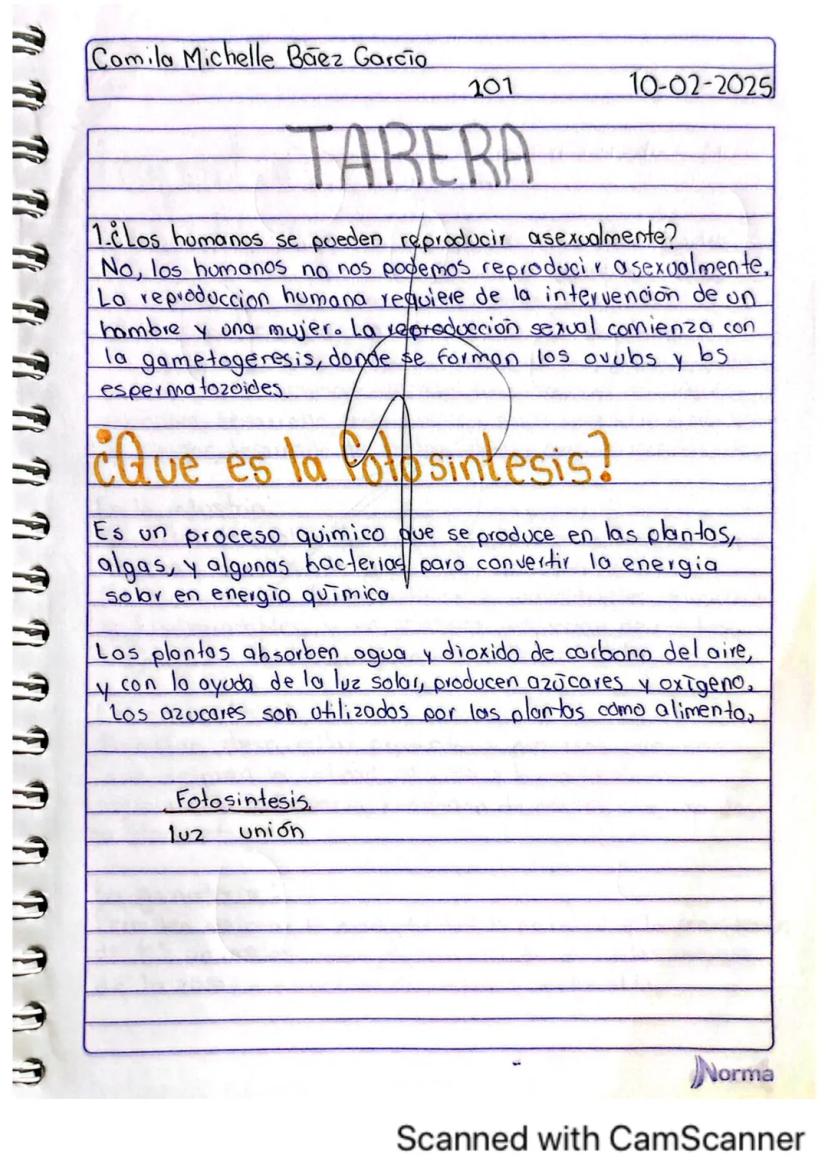 Camila Michelle Báez García
101 10-02-2025
TARERA
1.¿Los humanos se pueden reproducir asexualmente?
No, los humanos no nos podemos reproducir asexualmente.
La reproduccion humana requiere de la intervención de un
hombre y una mujer. La reproducción sexual comienza con
la gametogeresis, donde se forman los ovulos y los
espermatozoides.
¿Que es la fotosintesis?
Es un proceso quimico que se produce en las plantas,
algas, y algunas bacterias para convertir la energia
solar en energía química
Las plantas absorben agua y dioxido de carbono del aire,
y con la ayuda de la luz solar, producen azúcares y oxígeno.
Los azucares son utilizados por las plantas como alimento,
Fotosintesis.
luz unión
Norma
Scanned with CamScanner